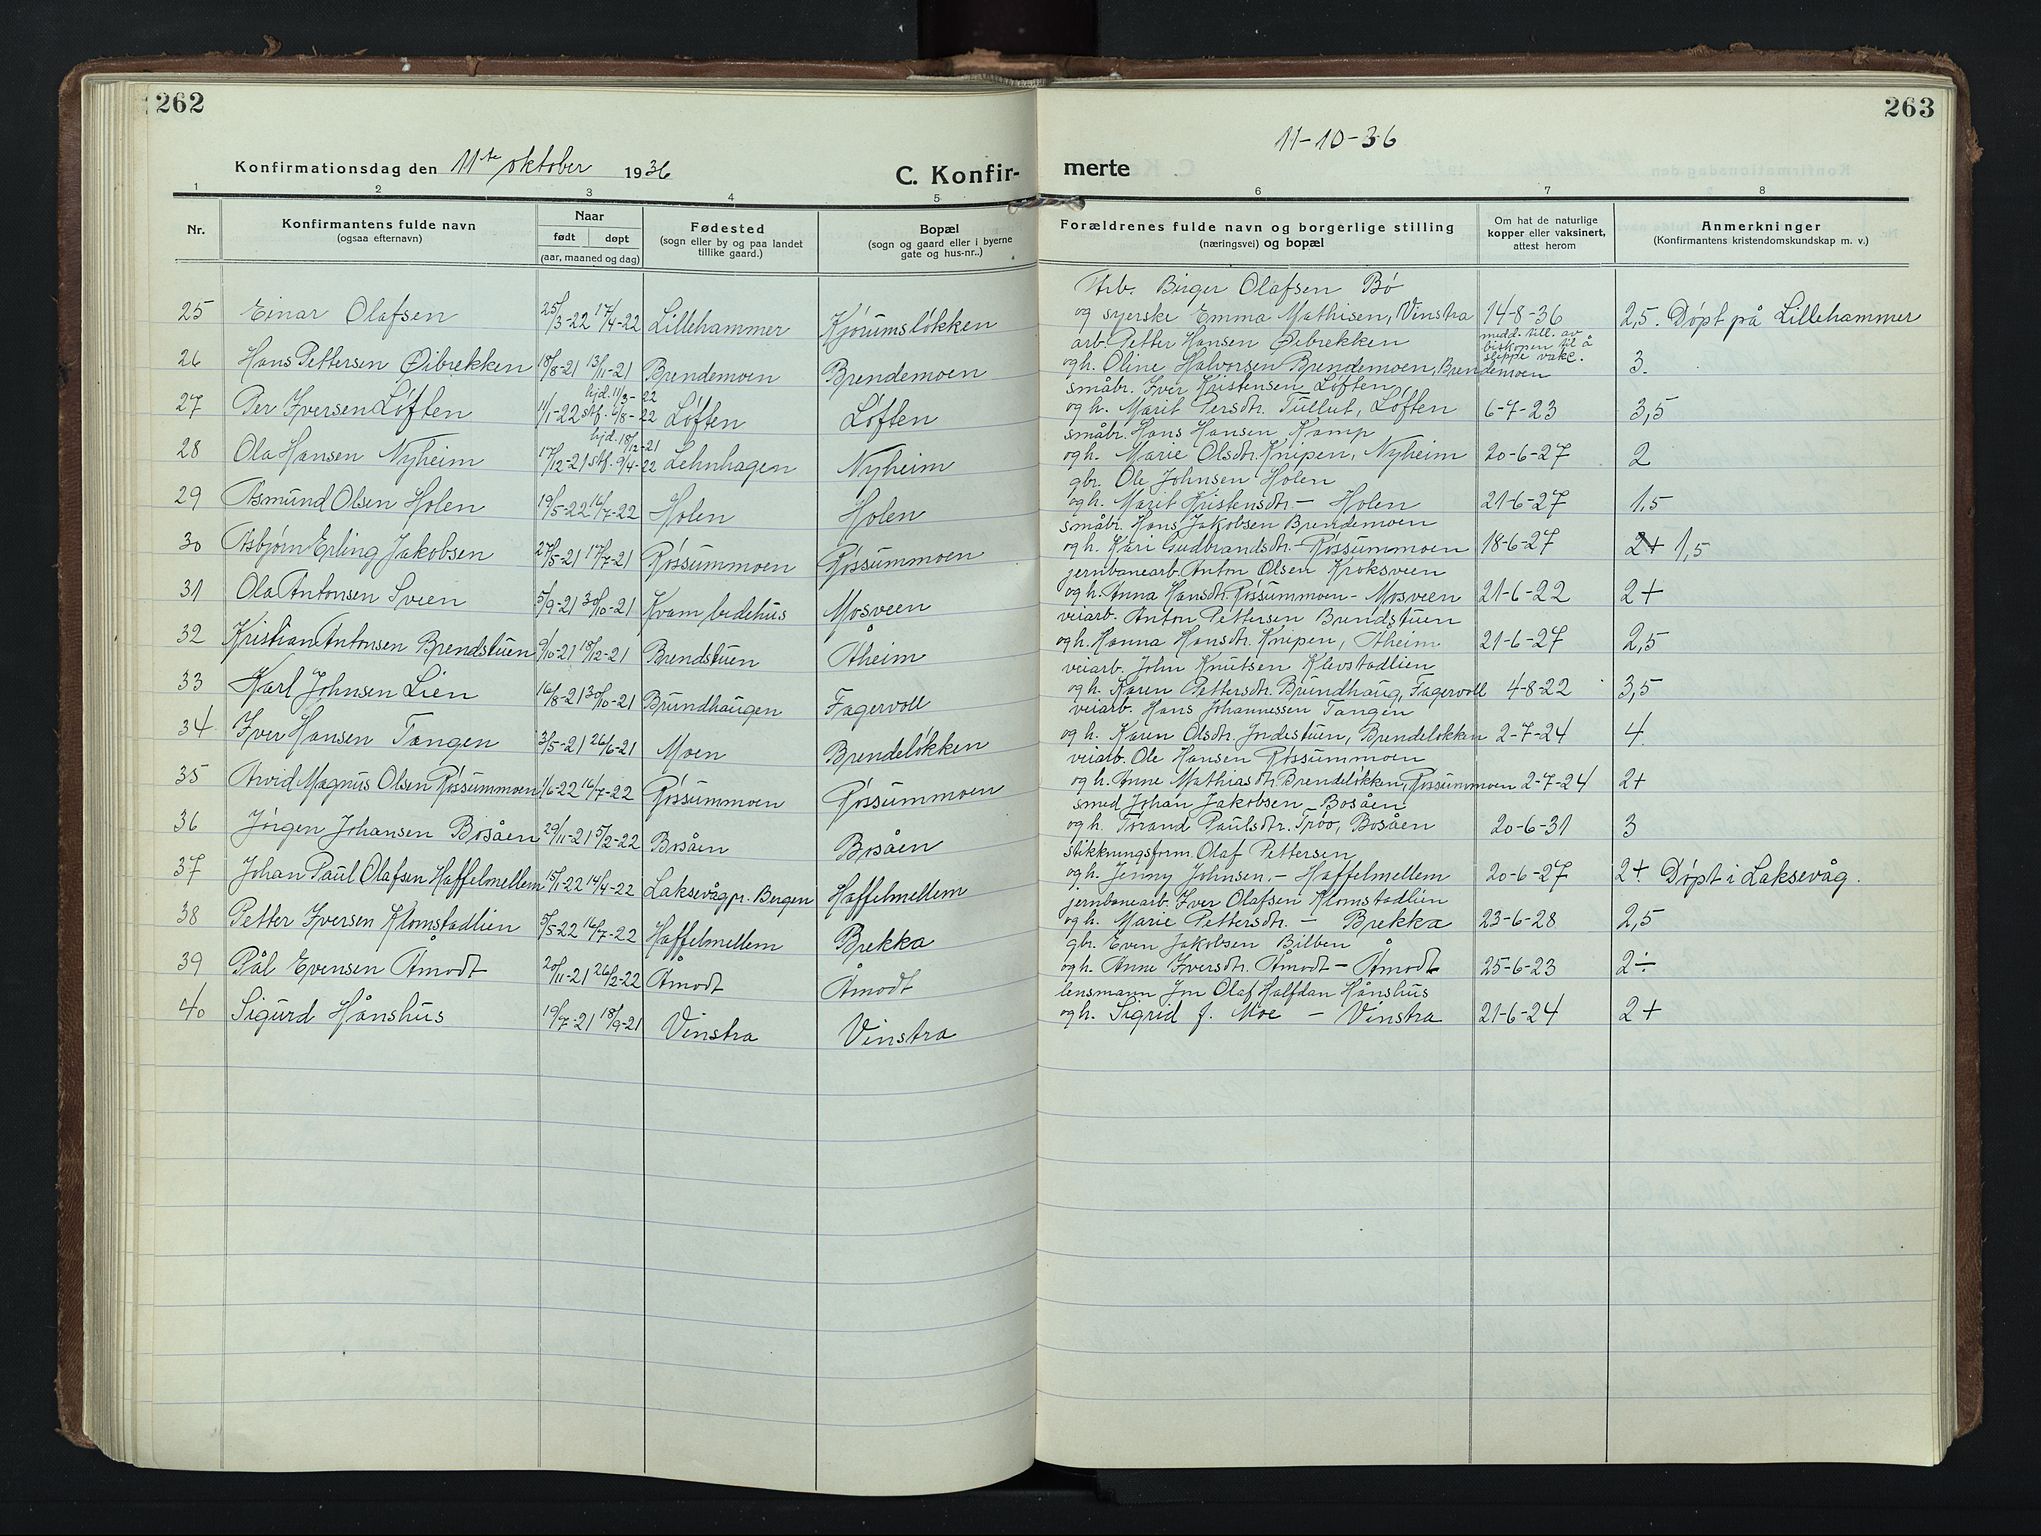 262
Konfirmationsdag den 11te oktober 1936
C. Konfir-
1 2 3 4 5
Nr.
Konfirmantens fulde navn
(ogsaa efternavn)
Naar
født døpt
(aar, maaned og dag)
Fødested
(sogn eller by og paa landet
tillike gaard.)
Bopæl
(sogn og gaard eller i byerne
gate og hus-nr..)
25 Einar Olafsen 25/3-22 17/4-22 Lillehammer Kjørumsløkken
26 Hans Pettersen Øibrekken 18/8-21 13/11-21 Brendemoen Brendemoen
hjd. 11/3-22
27 Per Iversen Løften 11/1-22 stf. 6/8-22 Løften Løften
hjd. 18/12-21
28 Ola Hansen Nyheim 17/12-21 stf. 9/4-22 Lehnhagen Nyheim
29 Asmund Olsen Holen 19/5-22 16/7-22 Holen Holen
30 Asbjørn Erling Jakobsen 27/5-21 17/7-21 Røssummoen Røssummoen
31 Ola Antonsen Sveen 5/9-21 30/10-21 Kvam bedehus Mosveen
32 Kristian Antonsen Brendstuen 9/10-21 18/12-21 Brendstuen Åheim
33 Karl Johnsen Lien 16/8-21 30/10-21 Brundhaugen Fagervoll
34 Iver Hansen Tangen 3/5-21 26/6-21 Moen Brendeløkken
35 Arvid Magnus Olsen Røssummoen 1/6-22 16/7-22 Røssummoen Røssummoen
36 Jørgen Johansen Bosåen 29/11-21 5/2-22 Bosåen Bosåen
37 Johan Paul Olafsen Haffelmellem 15/1-22 14/4-22 Laksevåg pr. Bergen Haffelmellem
38 Petter Iversen Klomstadlien 5/5-22 16/7-22 Haffelmellem Brekka
39 Pål Evensen Åmodt 20/11-21 26/2-22 Åmodt Åmodt
40 Sigurd Hånshus 19/7-21 18/9-21 Vinstra Vinstra
263
11-10-36
merte
6 7 8
Forældrenes fulde navn og borgerlige stilling
(næringsvei) og bopæl
Om hat de naturlige
kopper eller vaksinert,
attest herom
Anmerkninger
(Konfirmantens kristendomskundskap m. v.)
Arb. Birger Olafsen Bø
og syerske Emma Mathisen, Vinstra 14-8-36 2,5. Døpt på Lillehammer
arb. Petter Hansen Øibrekken medd. till. av
biskopen til å
og h. Oline Halvorsen Brendemoen, Brendemoen slippe vakc. 3.
småbr. Iver Kristensen Løften
og h. Marit Persdtr. Tullut, Løften 6-7-23 3,5
småbr. Hans Hansen Kamp
og h. Marie Olsdtr. Knipen, Nyheim 20-6-27 2
gbr. Ole Johnsen Holen
og h. Marit Kristensdtr. - Holen 21-6-27 1,5
småbr. Hans Jakobsen Brendemoen
og h. Kari Gudbrandsdtr. - Røssummoen 18-6-27 2+ 1,5
jernbanearb. Anton Olsen Kroksveen
og h. Anna Hansdtr. Røssummoen - Mosveen 21-6-22 2+
veiarb. Anton Pettersen Brendstuen
og h. Hanna Hansdtr. Knipen, Åheim 21-6-27 2,5
veiarb. John Knutsen Klevstadlien
og h. Karen Pettersdtr. Brundhaug, Fagervoll 4-8-22 3,5
veiarb. Hans Johannessen Tangen
og h. Karen Olsdtr. Jordestuen, Brendeløkken 2-7-24 4
veiarb. Ole Hansen Røssummoen
og h. Anne Mathiasdtr. Brendeløkken, Røssummoen 2-7-24 2+
smed Johan Jakobsen Bosåen
og h. Torand Paulsdtr. Trøo, Bosåen 20-6-31 3
stikkningsform. Olaf Pettersen
og h. Jenny Johnsen. - Haffelmellem 20-6-27 2+. Døpt i Laksevåg.
jernbanearb. Iver Olafsen Klomstadlien
og h. Marie Pettersdtr. - Brekka 23-6-28 2,5
gbr. Even Jakobsen Bilben
og h. Anne Iversdtr. Åmodt - Åmodt 25-6-23 2÷
lensmann Jon Olaf Halfdan Hånshus
og h. Sigrid f. Moe - Vinstra 21-6-24 2+